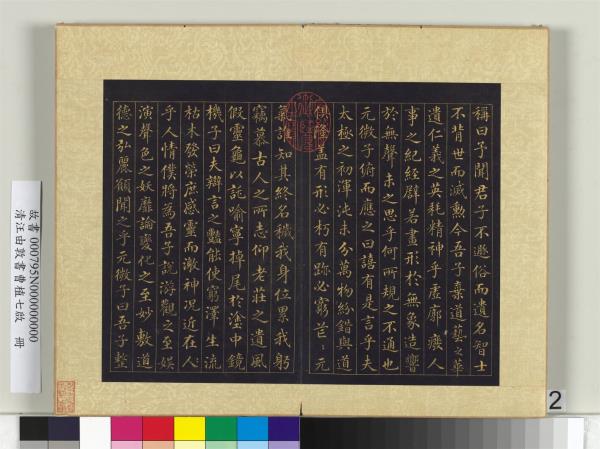 稱曰予聞君子不遯俗而遺名智士
不背世而滅勲今吾子棄道藝之華
遺仁義之英耗精神乎虛廓癈人
事之紀經辟若畫形於無象造響
於無聲未之思乎何所規之不通也
元微子俯而應之曰譆有是言乎夫
太極之初渾沌未分萬物紛錯與道
俱隆盖有形必朽有跡必窮芒〻元
氣誰知其終名穢我身位累我躬
竊慕古人之所志仰老莊之遺風
假靈龜以託喻寧掉尾於塗中鏡
機子曰夫辯言之豔能使窮澤生流
枯木發榮庶感靈而激神況近在人〻
乎人情僕將為吾子說游觀之至娛
演聲色之妖靡論變化之至妙敷道
德之弘麗願聞之乎元微子曰吾子整
故書 000795N000000000
清汪由敦書曹植七啟 冊
2